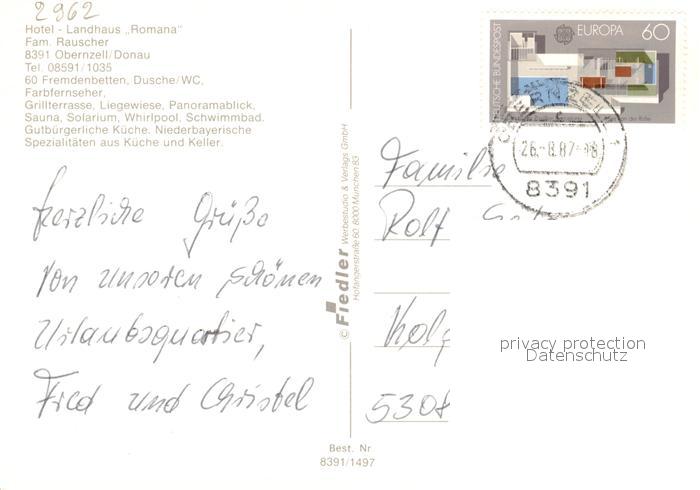 2962
Hotel - Landhaus „Romana"
Fam. Rauscher
8391 Obernzell/Donau
Tel. 08591/1035
60 Fremdenbetten, Dusche/WC,
Farbfernseher,
Grillterrasse, Liegewiese, Panoramablick,
Sauna, Solarium, Whirlpool, Schwimmbad.
Gutbürgerliche Küche. Niederbayerische
Spezialitäten aus Küche und Keller.
herzliche Grüße
von unseren schönen
Urlaubsquartier,
Fred und Christel
© Fiedler Werbestudio & Verlags GmbH
Hofangerstraße 60, 8000 München 83
Best. Nr
8391/1497
DEUTSCHE BUNDESPOST
EUROPA 60
26.-8.87-18
8391
Familie
Rolf
5308
privacy protection
Datenschutz